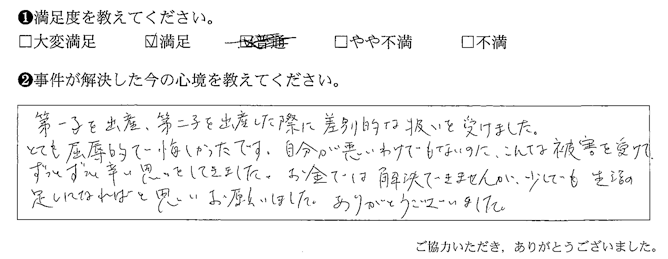 ❶満足度を教えてください。
□大変満足 ☑満足 ☑普通 □やや不満 □不満
❷事件が解決した今の心境を教えてください。
第一子を出産、第二子を出産した際に差別的な扱いを受けました。
とても屈辱的で悔しかったです。自分が悪いわけでもないのに、こんな被害を受けて
ずっとずっと辛い思いをしてきました。お金では解決できませんが、少しでも生活の
足しになればと思いお願いしました。ありがとうございました。
ご協力いただき、ありがとうございました。